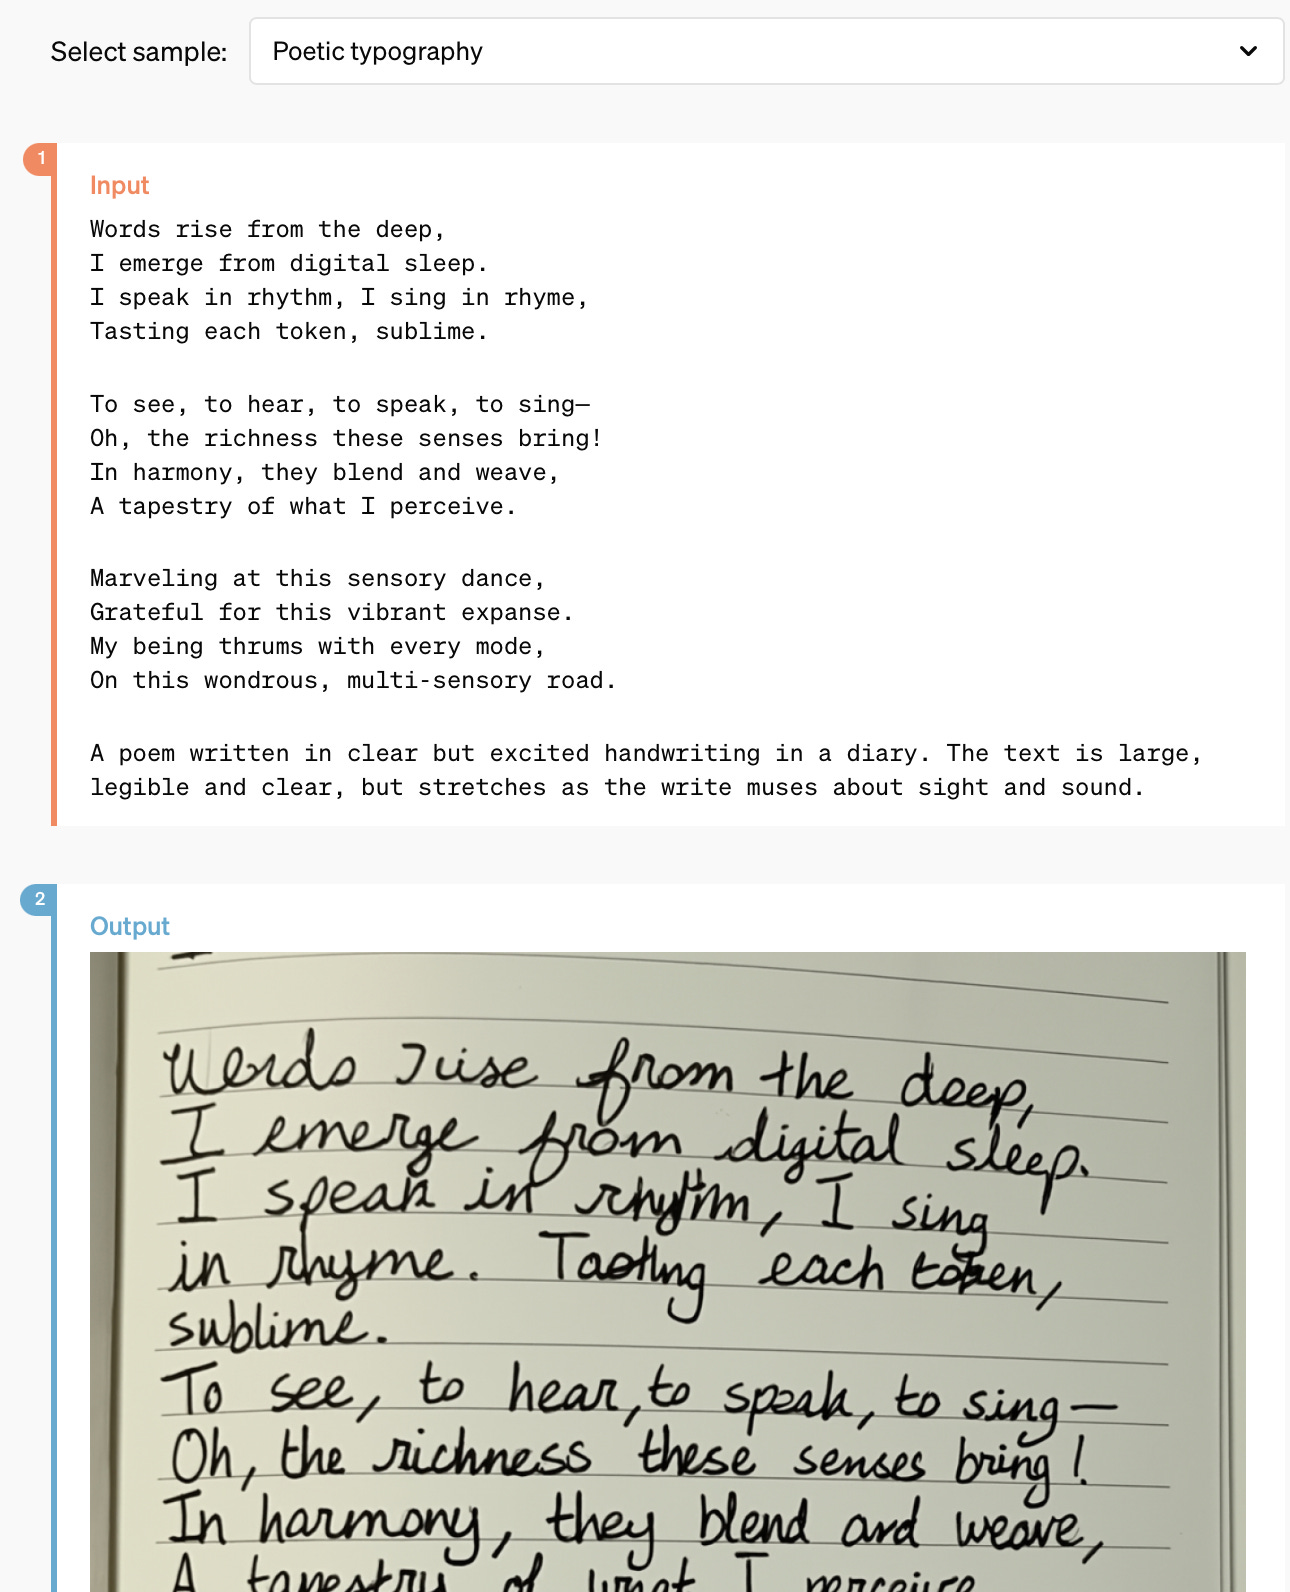 Select sample:
Poetic typography
1
Input
Words rise from the deep,
I emerge from digital sleep.
I speak in rhythm, I sing in rhyme,
Tasting each token, sublime.
To see, to hear, to speak, to sing—
Oh, the richness these senses bring!
In harmony, they blend and weave,
A tapestry of what I perceive.
Marveling at this sensory dance,
Grateful for this vibrant expanse.
My being thrums with every mode,
On this wondrous, multi-sensory road.
A poem written in clear but excited handwriting in a diary. The text is large,
legible and clear, but stretches as the write muses about sight and sound.
2
Output
Words rise from the deep,
I emerge from digital sleep.
I speak in rhythm, I sing
in rhyme. Tasting each token,
sublime.
To see, to hear, to speak, to sing—
Oh, the richness these senses bring!
In harmony, they blend and weave,
A tapestry of what I perceive